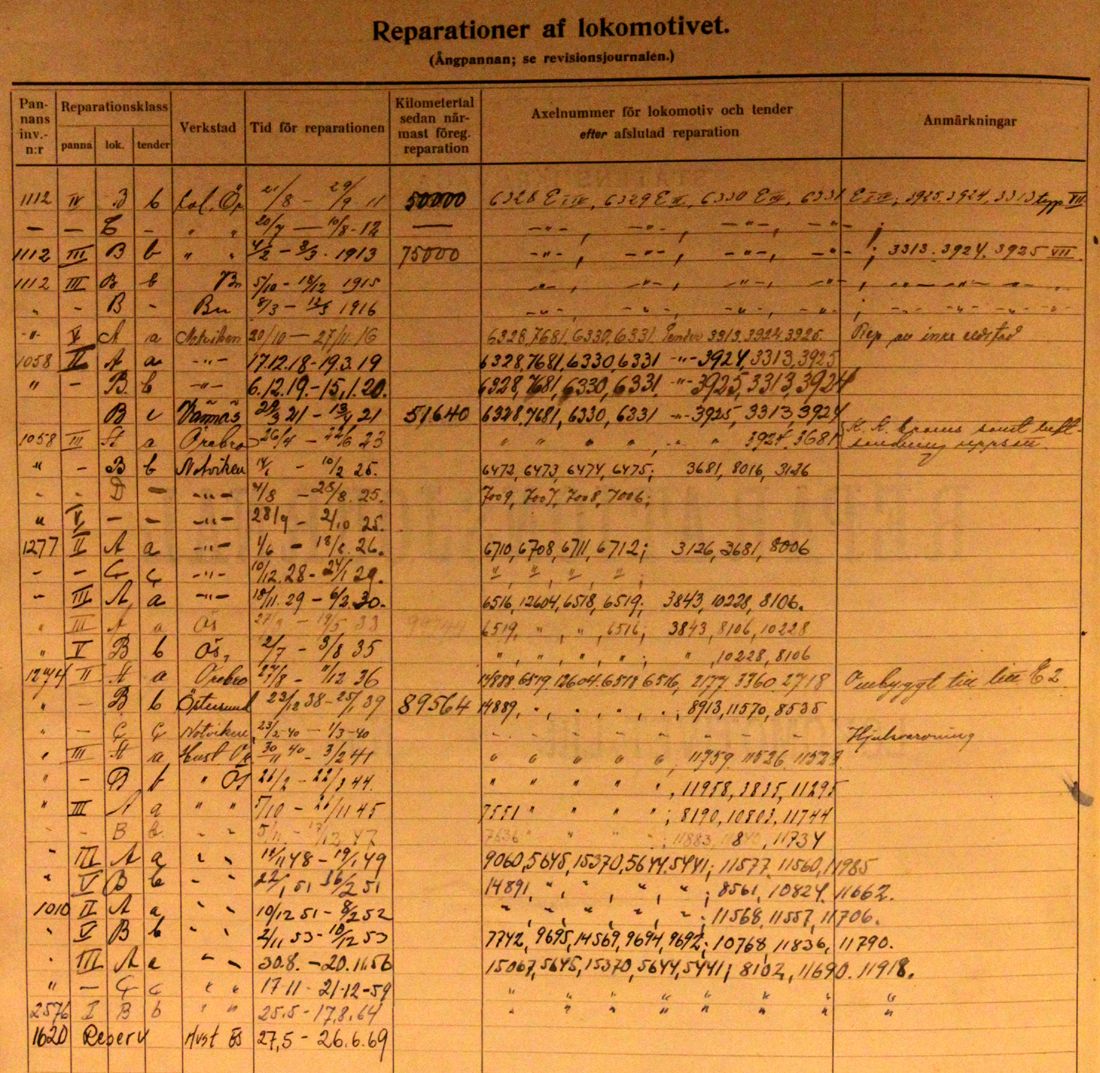 Reparationer af lokomotivet.
(Ångpannan; se revisionsjournalen.)
Pannans inv.-n:r Reparationsklass panna lok. tender Verkstad Tid för reparationen Kilometertal sedan närmast föreg. reparation Axelnummer för lokomotiv och tender efter afslutad reparation Anmärkningar
1112 IV B b 21/8 – 29/9 11 50000 6328 E 6329 E 6330 E 6331 E 3925, 3924, 3313 typ VII
– – – " " 20/7 – 10/8-12 — –"– , –"– , –"– , –"– ;
1112 III B b " " 4/2 – 3/3 1913 75000 –"– , –"– , –"– , –"– ; 3313. 3924. 3925 VII
1112 III B b Bn 5/10 – 18/12 1915 –"– , –"– , –"– , –"–
" - B - Bn 8/3 – 1916 –"– , –"– , –"– , –"–
–"– V A a Notviken 20/10 – 27/11-16 6328, 7681, 6330, 6331 Tender 3313, 3924, 3925. Rep av inre eldstad
1058 II A a –"– 17.12.18 - 19.3.19 6328, 7681, 6330, 6331 –"– 3924, 3313, 3925
" – B b –"– 6.12.19 – 15.1.20. 6328, 7681, 6330, 6331 –"– 3925, 3313, 3924
B c Vännäs 21 – 21 51640 6328, 7681, 6330, 6331 –"– 3925, 3313, 3924
1058 III A a Örebro 26/4 – 23 " " " " " 3924. 3681 K. K. samt
" – B b Notviken – 10/2 25. 6472, 6473, 6474, 6475; 3681, 8016, 3126
" - D – –"– 4/8 – 25/8. 25. 7009, 7007, 7008, 7006;
" V – – –"– 28/9 – 2/10 25.
1277 II A a –"– 1/6 – 18/8. 26. 6710, 6708, 6711, 6712; 3126, 3681, 8006
– – Ç Ç –"– 10/12. 28 – 24/1 29. " , " , " , " ;
" III A a –"– 18/11. 29 – 6/2. 30. 6516, 12604, 6518, 6519; 3843, 10228, 8106.
" III A a Ös – 19/5 33 6519, " , " , 6516; 3843, 8106, 10228
" V B b Ös, 2/7 – 3/8 35 " , " , " , " , " , 10228, 8106
1274 II A a Örebro 27/8 – 12 36 14888. 6519 12604. 6518 6516, 2177 3360 2718 Ombyggt till litt E2
" – B b Östersund 23/12 38 – 25/1 39 89564 14889, " , " , " , " , 8913, 11570, 8535
" – Ç Ç Notviken 23/2-40 – 1/3-40 – – – – – – – – Hjulsvarvning
" III A a Hvst Ös 30/11 40 – 3/2 41 " " " " " , 11759 11526 11528
" – B b " Ös 21/2 – 22/3 44. " " " " " , 11958, 3835, 11295
" III A a " " 5/10 – 11 45 7551 " " " " ; 8190, 10803, 11744
" - B b " " – 12 47 7636 " " " " ; 11883, 11734
" III A a " " 48 – 19/1 49 9060, 5645, 15370, 5644, 5441; 11577, 11560, 11985
" V B b " " 22/1 51 2 51 14891 " , " , " , " ; 8561, 10824, 11662.
1010 II A a " " 10/12 51 – 8/2 52 " , " , " , " , " ; 11568, 11557, 11706.
" V B b " " 2/11 53 – 10/12 53 7742, 9695, 14569, 9694, 9692; 10768, 11836, 11790.
" III A a " " 30.8. – 20.11.56 15067, 5645, 15370, 5644, 5441; 8102, 11690. 11918.
" – Ç c " " 17-11 - 21-12-59 " " " " " " " "
2576 I B b " " 25.5 - 17.8.64 " " " " " " " "
1620 Reserv Hvst Ös 27.5 - 26.6.69